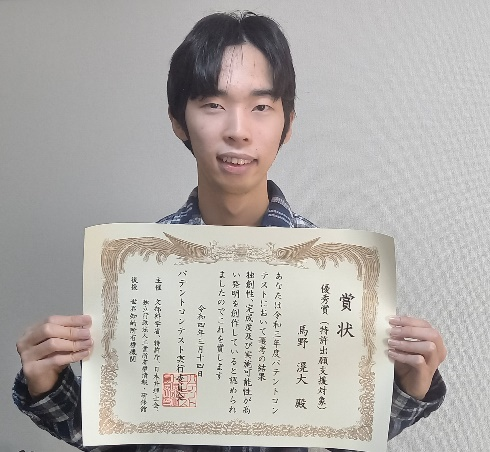 賞状
優秀賞（特許出願支援対象）
馬野 湜大 殿
あなたは令和三年度パテントコン
テストにおいて審考の結果
独創性、完成度及び実施可能性が高
い発明を創作していると認められ
ましたのでこれを賞します
令和四年三月十四日
パテントコンテスト実行委員会
主催 文部科学省 特許庁 日本弁理士会
独立行政法人工業所有権情報・研修館
後援 世界知的所有権機関